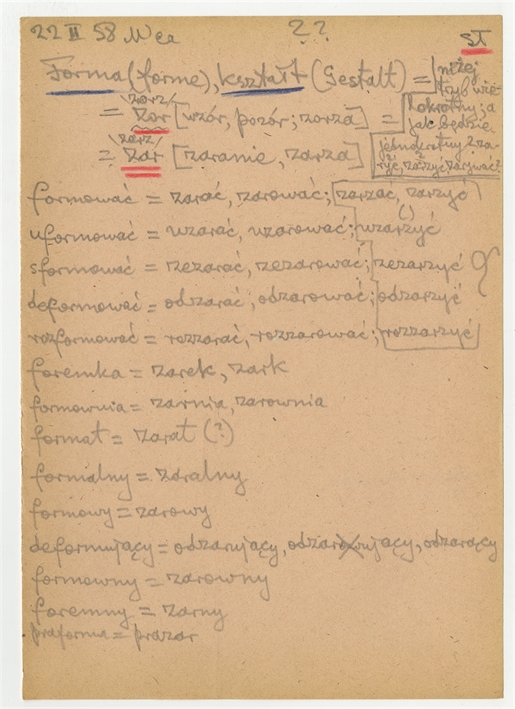 22 II 58 Wca ??
ST
Forma (forme), kształt (Gestalt) =
= zor [wzór, pozór; zorza] =
zorz/
= zar [zaranie, zarza]
zarz/
niżej
tryb wie
lokrotny; a
jak będzie
jednokrotny? za-
rýc, zarzyć zarywać?
formować = zarać, zarować; zarzać, zarzyć
uformować = wzarać, wzarować; wzarzyć
sformować = zezarać, zezarować; zezarzyć
deformować = odzarać, odzarować; odzarzyć
rozformować = rozzarać, rozzarować; rozzarzyć
foremka = zarek, zark
formownia = zarnia, zarownia
format = zarat (?)
formalny = zaralny
formowy = zarowy
deformujący = odzarujący, odzarowujący, odzarający
formowny = zarowny
foremny = zarny
praforma = prazar